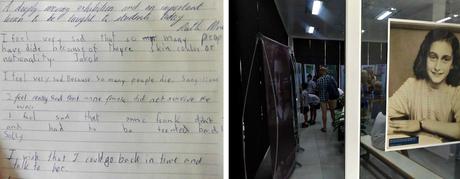 A deeply moving exhibition and an important
lesson to be taught to students today.
Ruth
I feel very sad that so many people
have died because of theyre skin colour or
nationality. Jakob
I feel very sad Because so many people die.
I feel really sad that anne frank did not survive the
war.
I feel sad that anne frank didn't
and had to be treated bad!
Sally
I wish that I could go back in time and
talk to her.